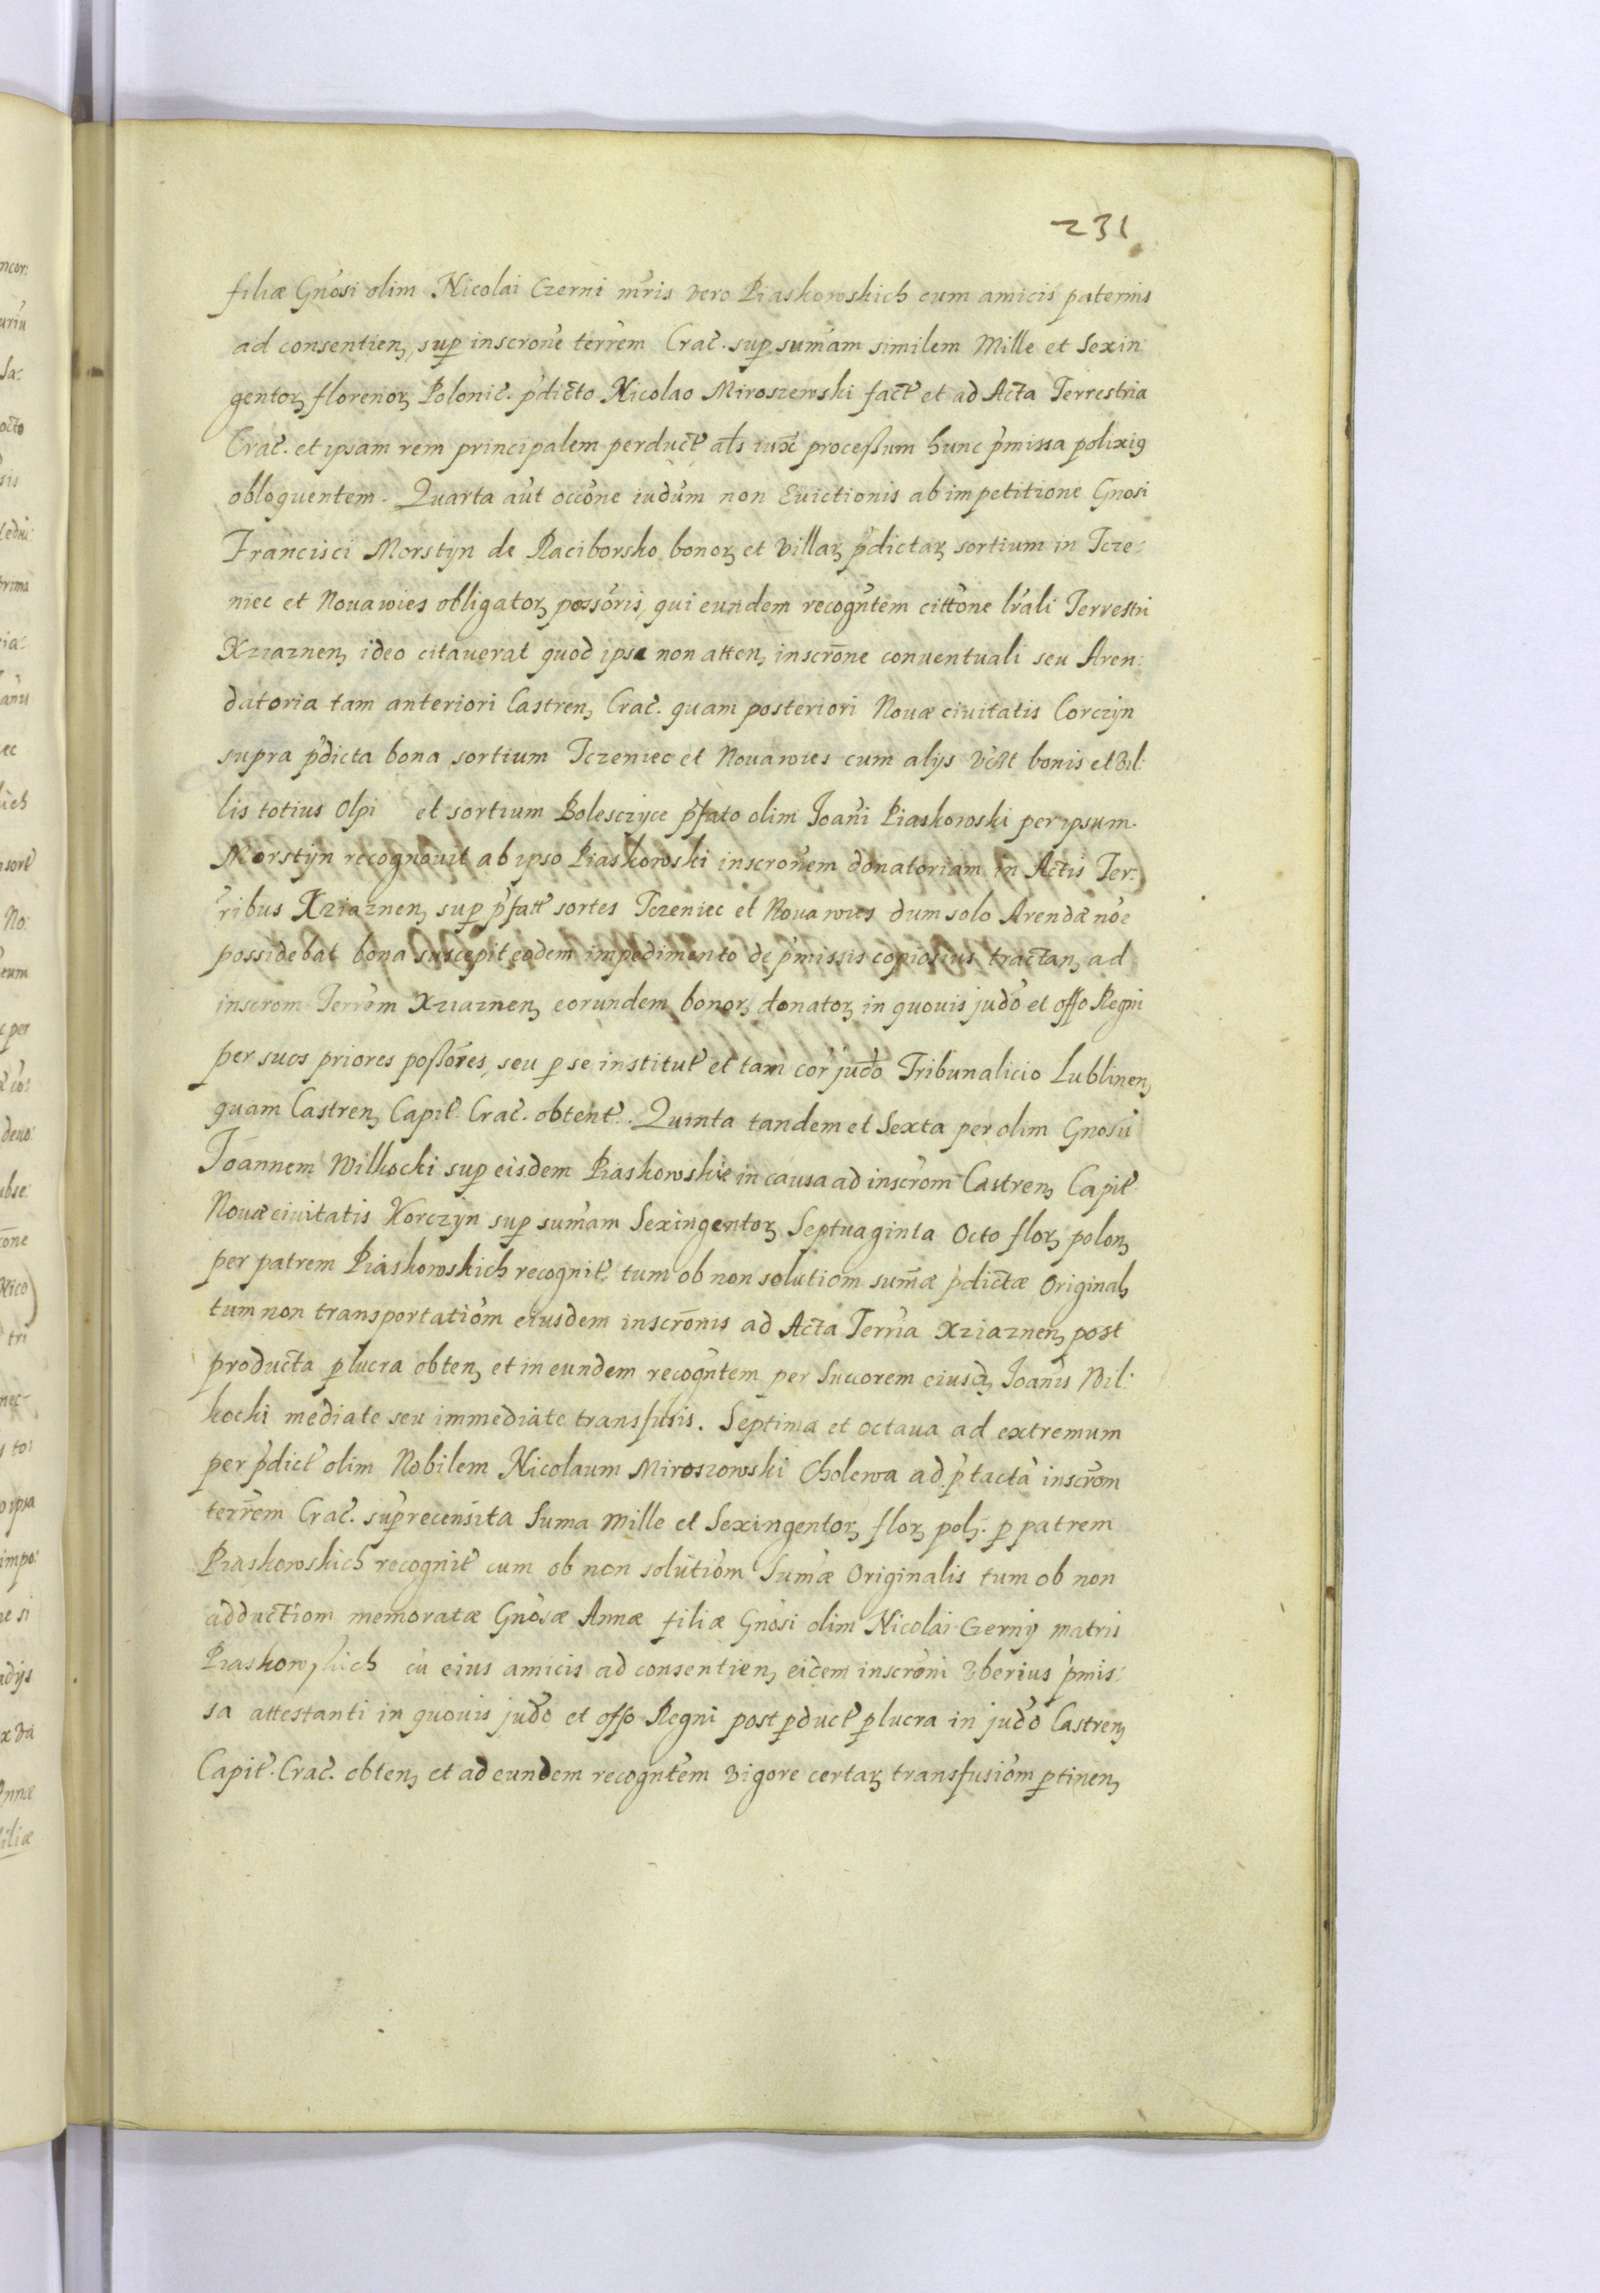 231
filiæ Gnosi olim Nicolai Czerni mris vero Piaskowskich cum amicis paternis
ad consentien, sup inscrone terrem Crac. sup sumam similem Mille et Sexin:
gentor florenor Polonic. pdicto Nicolao Miroszewski fact et ad Acta Terrestria
Crac. et ipsam rem principalem perduct als iux proceßum hunc pmissa polixi9
obloquentem. Quarta aut occone iudum non Evictionis ab impetitione Gnosi
Francisci Morstijn de Raciborsko bonor et villar pdictar sortium in Icze:
niec et Nouawies obligator possoris, qui eundem recogntem cittone lrali Terrestri
Xziaznen, ideo citauerat quod ipse non atten, inscrone conuentuali seu Aren:
datoria tam anteriori Castren, Crac. quam posteriori Nouæ ciuitatis Corczyn
supra pdicta bona sortium Iczeniec et Nouawies cum alijs bonis et Vil:
lis totius Olpi et sortium Bolesczyce pfato olim Joani Piaskowski per ipsum
Morstijn recognouit ab ipso Piaskowski inscronem donatoriam in Actis Ter:
ribus Xziaznen, sup pfatt sortes Iczeniec et Nouawies dum solo Arendæ noe
possidebat bona suscepit eodem impedimento de pmissis copiosius tractan, ad
inscrom Terrem Xziaznen, eorundem bonor, donator, in quouis judo et offo Regni
per suos priores poßores, seu p se institut et tam cor judo Tribunalicio Lublinen,
quam Castren, Capit. Crac. obtent. Quinta tandem et Sexta per olim Gnosu
Joannem Wilkocki sup eisdem Piaskowskie in causa ad inscrom Castren, Capit
Nouæ ciuitatis Korczyn sup sumam Sexingentor, Septuaginta Octo flor, polon,
per patrem Piaskowskich recognit, tum ob non solutiom sumæ pdictæ Original,
tum non transportatiom eiusdem inscronis ad Acta Terria Xziaznen, post
producta p lucra obten, et in eundem recogntem per Succorem eiusd, Joanis Wil:
kocki mediate seu immediate transfusis. Septima et octaua ad extremum
per pdict olim Nobilem Nicolaum Miroszowski Cholewa ad ptacta inscrom
terrem Crac. suprecensita Suma Mille et Sexingentor, flor, pol. p patrem
Piaskowskich recognit cum ob non solutiom Sumæ Originalis tum ob non
adductiom memoratæ Gnosæ Annæ filiæ Gnosi olim Nicolai Czernij matris
Piaskowskich cu eius amicis ad consentien, eidem inscroni Vberius pmis:
sa attestanti in quouis judo et offo Regni post pduct p lucra in judo Castren,
Capit. Crac. obten, et ad eundem recogntem vigore certar, transfusiom ptinen,